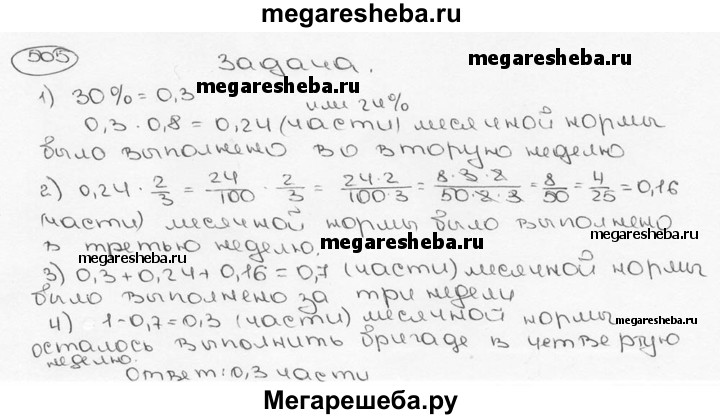 megaresheba.ru
505 Задача.
megaresheba.ru
1) 30% = 0,3
megaresheba.ru
или 24%
0,3 · 0,8 = 0,24 (части) месячной нормы
было выполнено во вторую неделю
2) 0,24 · 2/3 = 24/100 · 2/3 = 24·2/100·3 = 8·3·2/50·2·3 = 8/50 = 4/25 = 0,16
(части) месячной нормы было выполнено
megaresheba.ru
в третью неделю.
megaresheba.ru
3) 0,3 + 0,24 + 0,16 = 0,7 (части) месячной нормы
было выполнено за три недели
4) 1-0,7=0,3 (части) месячной нормы
megaresheba.ru
осталось выполнить бригаде в четвертую
неделю.
Ответ: 0,3 части
Мегарешеба.ру